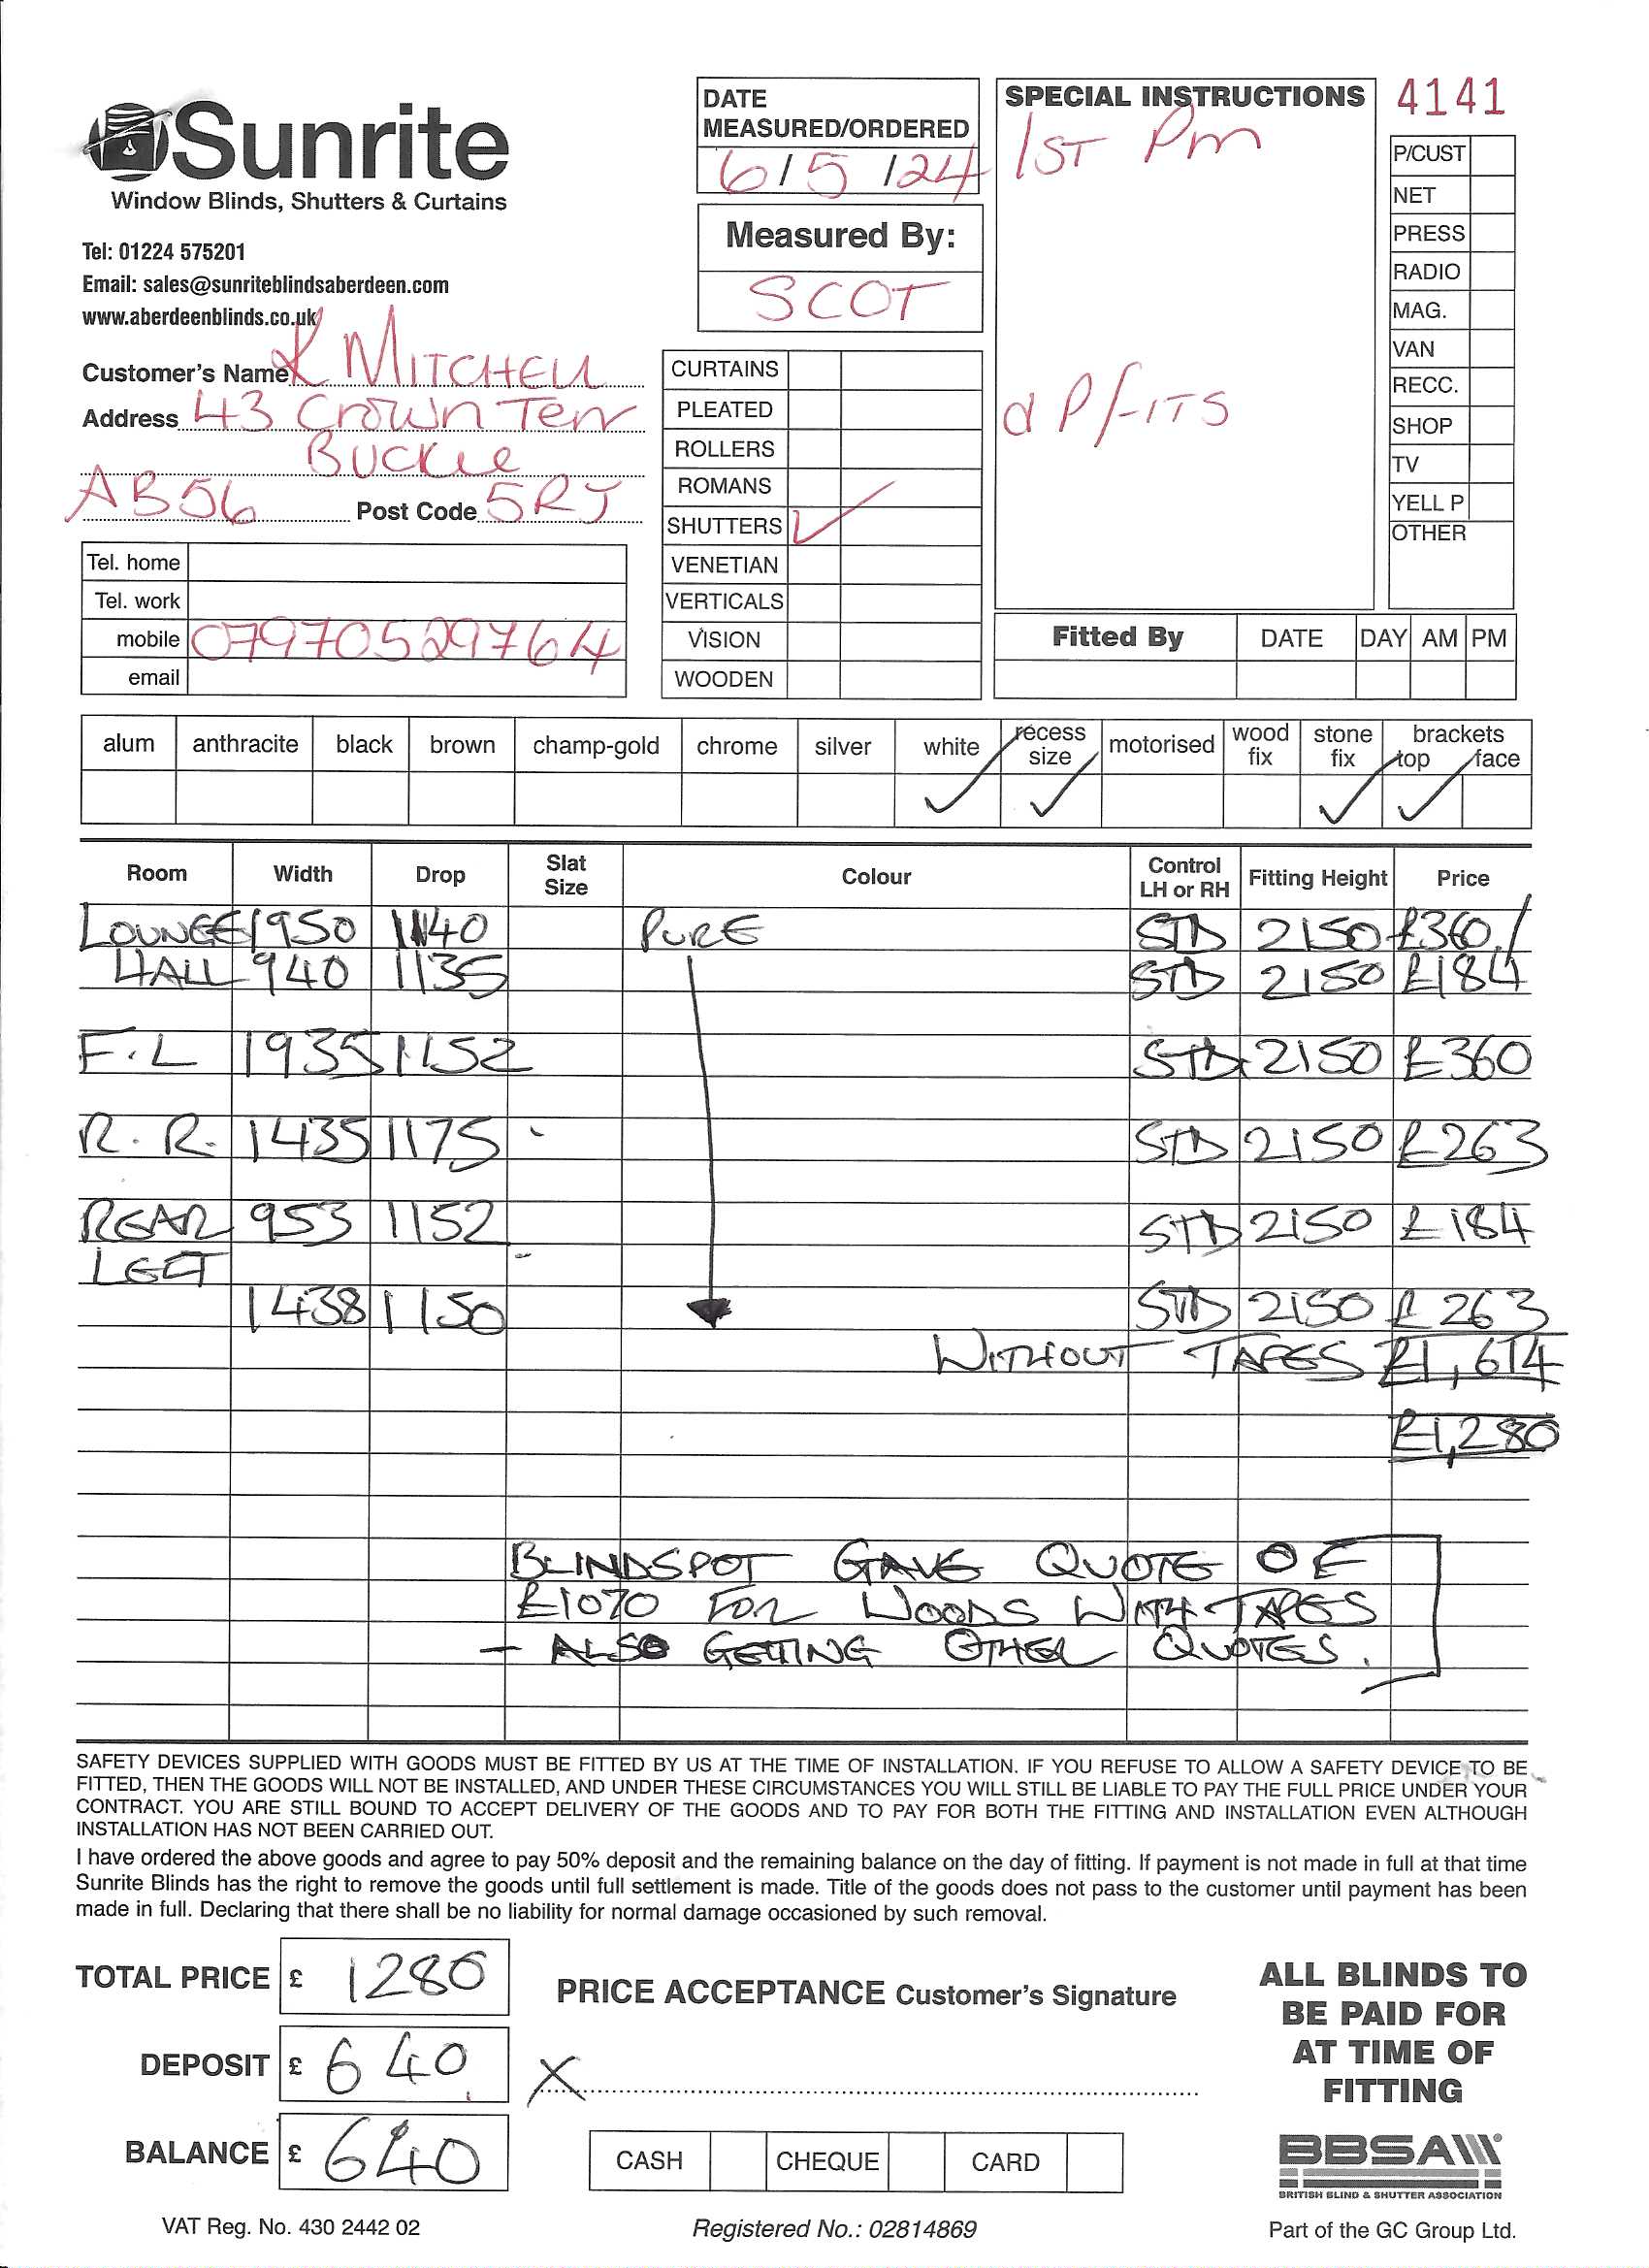 Sunrite
Window Blinds, Shutters & Curtains
Tel: 01224 575201
Email: sales@sunriteblindsaberdeen.com
www.aberdeenblinds.co.uk
Customer's Name K MITCHELL
Address 43 Crown Terr
BUCKIE
AB56 Post Code 5RJ
Tel. home
Tel. work
mobile 07970529764
email
DATE
MEASURED/ORDERED
6/5/24
Measured By:
SCOT
CURTAINS
PLEATED
ROLLERS
ROMANS
SHUTTERS ✓
VENETIAN
VERTICALS
VISION
WOODEN
SPECIAL INSTRUCTIONS
1ST Pm
4141
P/CUST
NET
PRESS
RADIO
MAG.
VAN
RECC.
SHOP
TV
YELL P
OTHER
Fitted By DATE DAY AM PM
alum anthracite black brown champ-gold chrome silver white recess size motorised wood fix stone fix brackets top face
✓ ✓ ✓ ✓
Room Width Drop Slat Size Colour Control LH or RH Fitting Height Price
LOUNGE 1950 1140 PURE STD 2150 £360
HALL 940 1135 STD 2150 £184
F.L 1935 1152 STD 2150 £360
R.R. 1435 1175 STD 2150 £263
REAR 953 1152 STD 2150 £184
LEFT
1438 1150 STD 2150 £263
WITHOUT TAPES £1,614
£1,280
BLINDSPOT GAVE QUOTE OF
£1070 FOR WOODS WITH TAPES
- ALSO GETTING OTHER QUOTES.
SAFETY DEVICES SUPPLIED WITH GOODS MUST BE FITTED BY US AT THE TIME OF INSTALLATION. IF YOU REFUSE TO ALLOW A SAFETY DEVICE TO BE
FITTED, THEN THE GOODS WILL NOT BE INSTALLED, AND UNDER THESE CIRCUMSTANCES YOU WILL STILL BE LIABLE TO PAY THE FULL PRICE UNDER YOUR
CONTRACT. YOU ARE STILL BOUND TO ACCEPT DELIVERY OF THE GOODS AND TO PAY FOR BOTH THE FITTING AND INSTALLATION EVEN ALTHOUGH
INSTALLATION HAS NOT BEEN CARRIED OUT.
I have ordered the above goods and agree to pay 50% deposit and the remaining balance on the day of fitting. If payment is not made in full at that time
Sunrite Blinds has the right to remove the goods until full settlement is made. Title of the goods does not pass to the customer until payment has been
made in full. Declaring that there shall be no liability for normal damage occasioned by such removal.
TOTAL PRICE £ 1280
DEPOSIT £ 640
BALANCE £ 640
PRICE ACCEPTANCE Customer's Signature
X
CASH CHEQUE CARD
ALL BLINDS TO
BE PAID FOR
AT TIME OF
FITTING
BBSA
BRITISH BLIND & SHUTTER ASSOCIATION
VAT Reg. No. 430 2442 02
Registered No.: 02814869
Part of the GC Group Ltd.